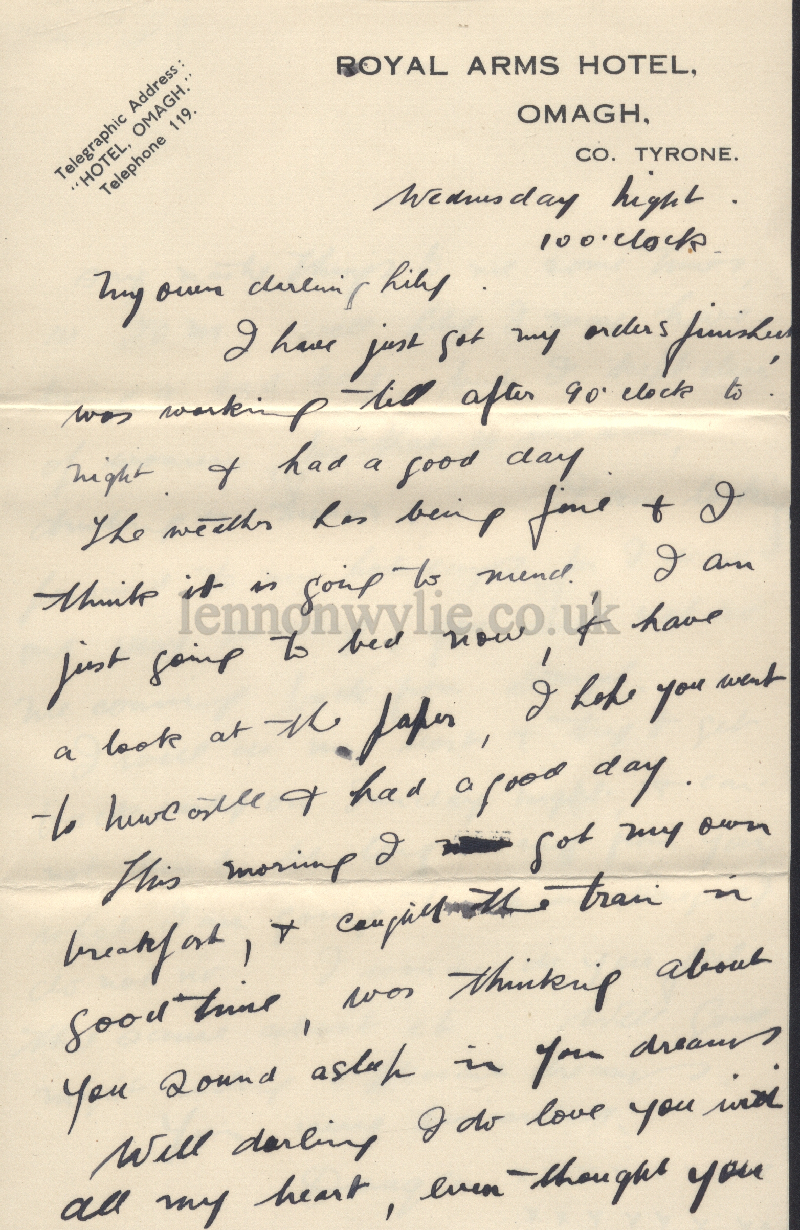 ROYAL ARMS HOTEL,
OMAGH,
CO. TYRONE.
Telegraphic Address:
"HOTEL, OMAGH."
Telephone 119.
Wednesday night.
10 o'clock
My own darling Lily.
I have just got my orders finished,
was working till after 9 o'clock to
night & had a good day
The weather has being fine & I
think it is going to mend. I am
lennonwylie.co.uk
just going to bed now, & have
a look at the paper, I hope you went
to Newcastle & had a good day.
This morning I got my own
breakfast, & caught the train in
good time, was thinking about
you sound asleep in your dreams
Well darling I do love you with
all my heart, even thought you